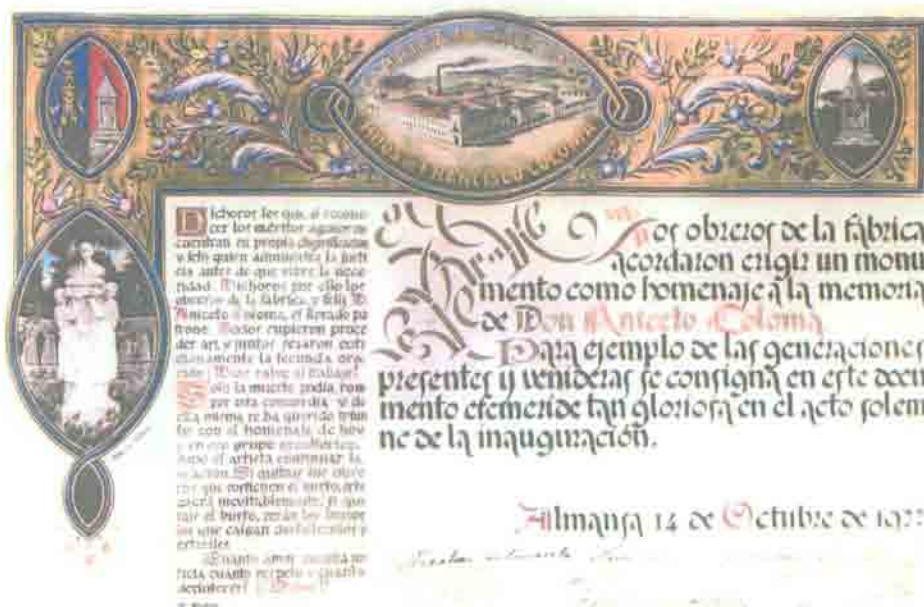 FRANCISCO COLOMA
Dichosos los que, al recono-
cer los méritos ajenos se
encuentran en propia dignificados
y feliz quien administra la justi
cia antes de que
sidad. Dichosos por ello los
obreros de la fábrica, y feliz D.
Aniceto Coloma, el llorado pa
trono. Todos supieron proce
der así, y juntos rezaron coti
dianamente la fecunda ora
ción
Sólo la muerte podía rom
per esta comunidad, y de
ella misma se ha querido triun
far con el homenaje de hoy
y en ese grupo escultórico,
supo el artista
Si quitáis los obre
ros que sostienen el busto, éste
caerá inevitablemente, si qui
táis el busto, serán los obreros
los que caigan
Cuánto amor, cuánta jus
ticia, cuánto respeto y cuánta
Los obreros de la fábrica
acordaron erigir un monu
mento como homenaje a la memoria
de Don Aniceto Coloma
Para ejemplo de las generaciones
presentes y venideras se consigna en este docu
mento efeméride tan gloriosa en el acto solem
ne de la inauguración.
Almansa 14 de Octubre de 192